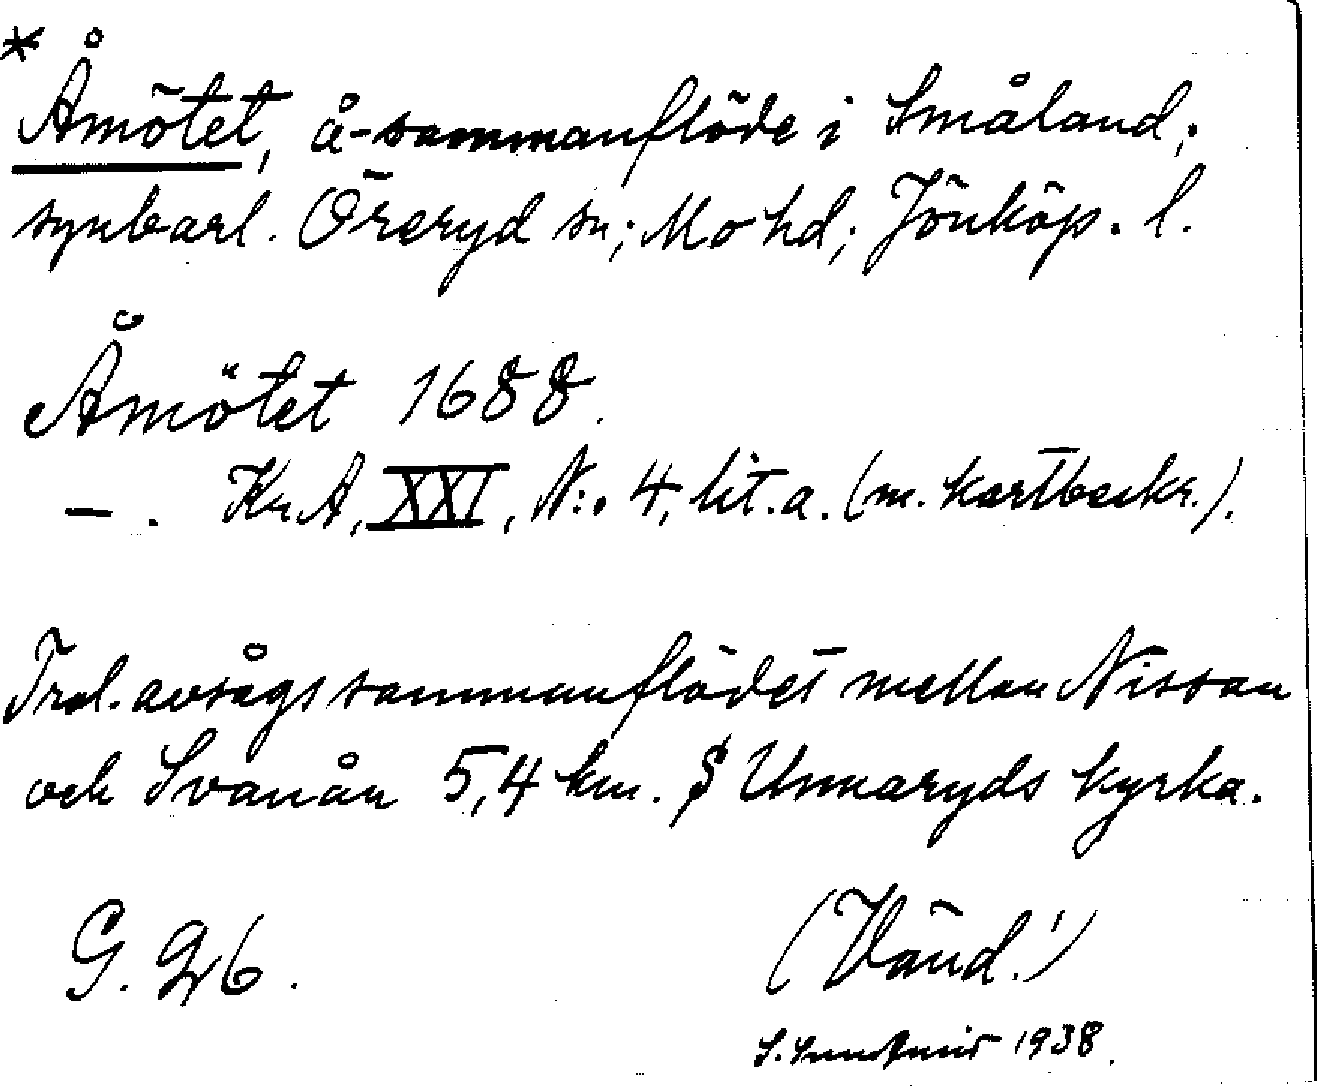 * Åmötet, å-sammanflöde i Småland;
synbarl. Öreryd sn; Mo hd; Jönköp. l.
Åmötet 1688.
— . Kr.A, XXI, N:o 4, lit. a. (m. kartbeskr.).
Trol. avságs sammanflödet mellan Nissan
och Svanån 5,4 km. S Unnaryds kyrka.
G. 26.
(Vänd!)
1938.